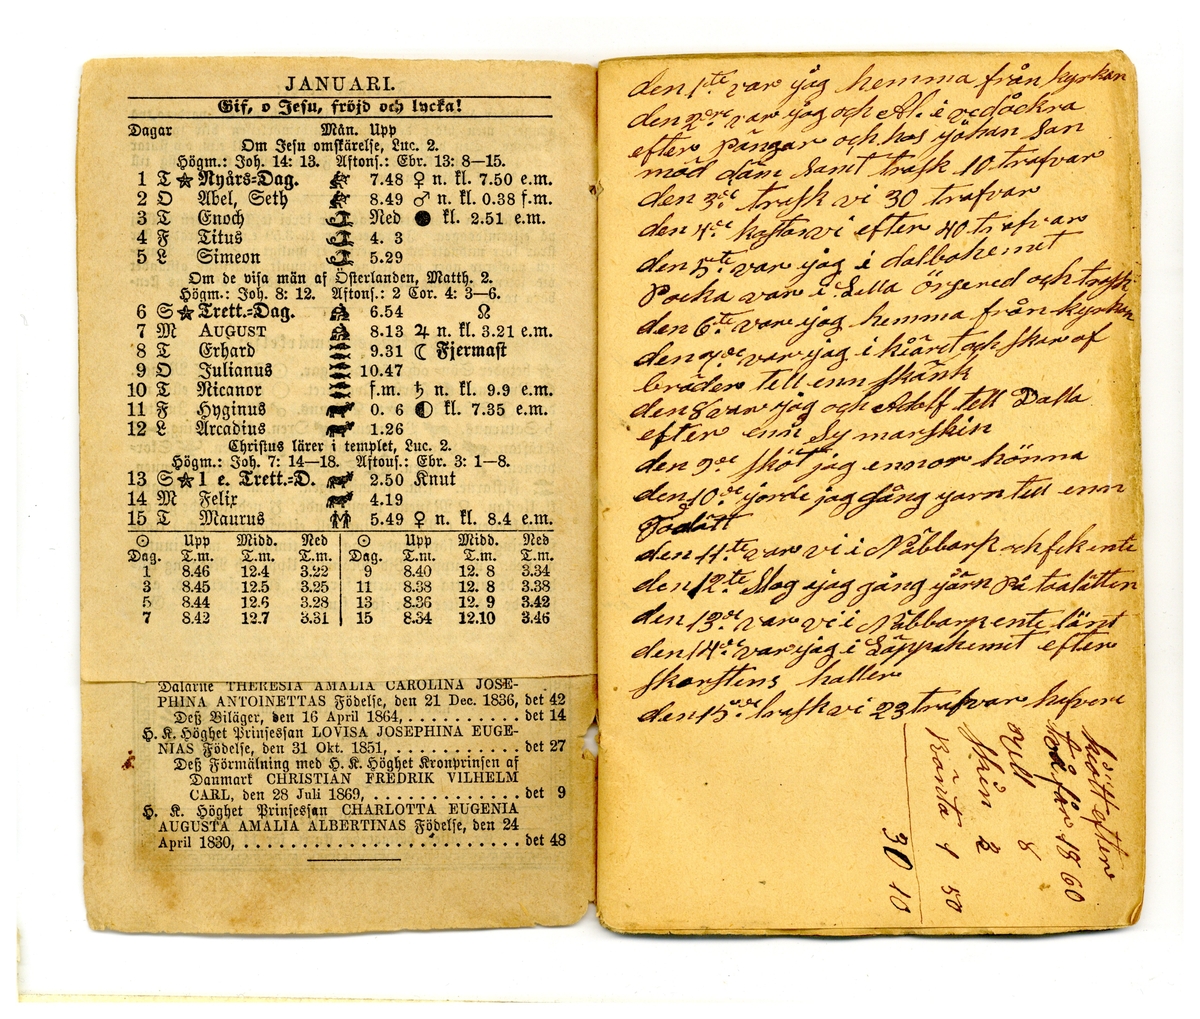 JANUARI.
Gif, o Jesu, fröjd och lycka!
Dagar Mån. Upp
Om Jesu omskärelse, Luc. 2.
Högm.: Joh. 14: 13. Aftons.: Ebr. 13: 8—15.
1 T Nyårs-Dag. 7.48 ♀ n. kl. 7.50 e.m.
2 O Abel, Seth 8.49 ♂ n. kl. 0.38 f.m.
3 T Enoch Ned ● kl. 2.51 e.m.
4 F Titus 4. 3
5 L Simeon 5.29
Om de visa män af Österlanden, Matth. 2.
Högm.: Joh. 8: 12. Aftons.: 2 Cor. 4: 3—6.
6 S Trett.-Dag. 6.54 ☊
7 M AUGUST 8.13 ♃ n. kl. 3.21 e.m.
8 T Erhard 9.31 ☾ Fjermast
9 O Julianus 10.47
10 T Nicanor f.m. ♄ n. kl. 9.9 e.m.
11 F Hyginus 0. 6 ◐ kl. 7.35 e.m.
12 L Arcadius 1.26
Christus lärer i templet, Luc. 2.
Högm.: Joh. 7: 14—18. Aftons.: Ebr. 3: 1—8.
13 S 1 e. Trett.-D. 2.50 Knut
14 M Felix 4.19
15 T Maurus 5.49 ♀ n. kl. 8.4 e.m.
☉ Upp Midd. Ned ☉ Upp Midd. Ned
Dag. T.m. T.m. T.m. Dag. T.m. T.m. T.m.
1 8.46 12.4 3.22 9 8.40 12. 8 3.34
3 8.45 12.5 3.25 11 8.38 12. 8 3.38
5 8.44 12.6 3.28 13 8.36 12. 9 3.42
7 8.42 12.7 3.31 15 8.34 12.10 3.46
Dalarne THERESIA AMALIA CAROLINA JOSE-
PHINA ANTOINETTAS Födelse, den 21 Dec. 1836, det 42
Deß Biläger, den 16 April 1864, . . . . . . . . . . det 14
H. K. Höghet Prinsessan LOVISA JOSEPHINA EUGE-
NIAS Födelse, den 31 Okt. 1851, . . . . . . . . . . . det 27
Deß Förmälning med H. K. Höghet Kronprinsen af
Danmark CHRISTIAN FREDRIK VILHELM
CARL, den 28 Juli 1869, . . . . . . . . . . . . . det 9
H. K. Höghet Prinsessan CHARLOTTA EUGENIA
AUGUSTA AMALIA ALBERTINAS Födelse, den 24
April 1830, . . . . . . . . . . . . . . . . . . . . . . . . det 48
den 1te var jag hemma från kyrkan
den 2dre var jag och Al. i vedåckra
efter Pångar och hos yohan San
mod dam samt trask 10 trafvar
den 3de trask vi 30 trafvar
den 4de kastar vi efter 40 trafvar
den 5te var jag i dalbohemet
Pocka var i Lilla örgered och trask
den 6te var jag hemma från kyrkan
den 7de var jag i kiäret och skar af
bräder tell enn skänk
den 8 var jag och Adolf tell Dalla
efter enn Symarskin
den 9de sköt jag ennor hönna
den 10de jorde jag gång yarn tell enn
Toalätt
den 11te var vi i Näbbarp och fek ente
den 12te Slog ijag gång yärn På toalätten
den 13de var vi i Näbbarp ente länt
den 14de var jag i Läppahemet efter
skorstens haller
den 15de trask vi 23 trafvar hafvere
skott efter
två får 18 60
Ull 8
skin 2
Ränta 1 50
30 10